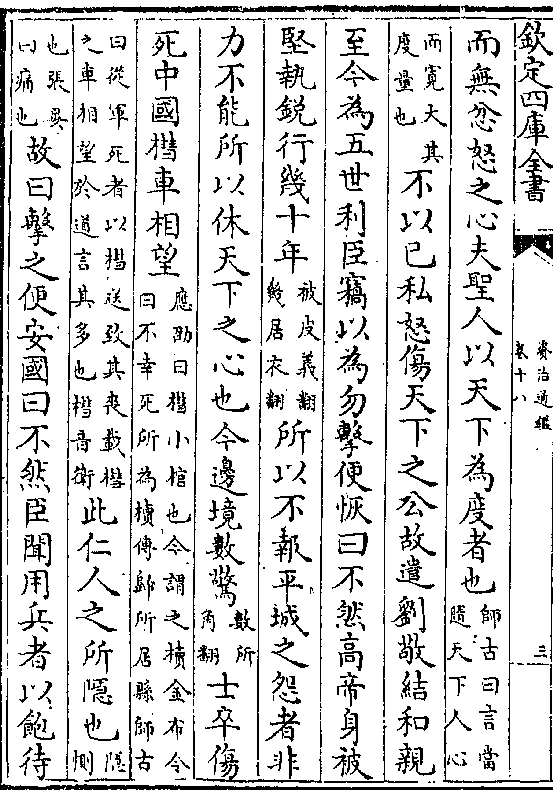 欽定四庫全書
資治通鑑
卷十八
三
而無忿怒之心夫聖人以天下為度者也師古曰言當隨天下人心
而寛大其度量也不以已私怒傷天下之公故遣劉敬結和親
至今為五世利臣竊以為勿擊便恢曰不然高帝身被
堅執鋭行幾十年被皮義翻幾居衣翻所以不報平城之怨者非
力不能所以休天下之心也今邊境數驚數所角翻士卒傷
死中國槥車相望應劭曰槥小棺也今謂之櫝金布令曰不幸死所為櫝傳歸所居縣師古
曰從軍死者以槥送致其喪載槥之車相望於道言其多也槥音衛此仁人之所隠也隠惻
也張晏曰痛也故曰擊之便安國曰不然臣聞用兵者以飽待